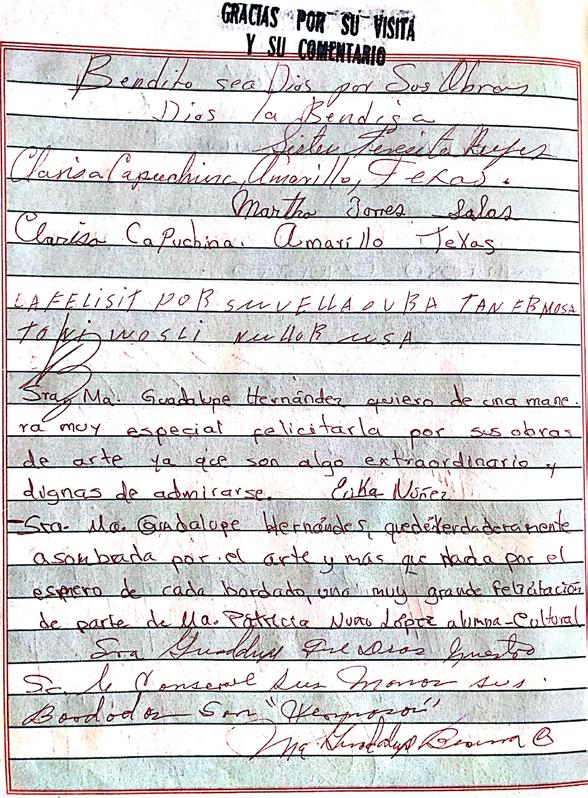 GRACIAS POR SU VISITA
Y SU COMENTARIO
Bendito sea Dios por Sus Obras
Dios la Bendiga
Sister Teresita Reyes
Clarisa Capuchina, Amarillo, Texas.
Martha Torres Salas
Clarisa Capuchina. Amarillo Texas
LA FELISIT POR SU VELLA OVRA TAN ERMOSA
USA
Sra. Ma. Guadalupe Hernández quiero de una mane-
ra muy especial felicitarla por sus obras
de arte ya que son algo extraordinario y
dugnas de admirarse. Erika Núñez
-Sra. Ma. Guadalupe Hernándes, quedé verdaderamente
asombrada por el arte y más que nada por el
esmero de cada bordado, una muy grande felicitación
de parte de Ma. Patricia Nuño López alumna-Cultural
Sra Guadalupe Que Dios Nuestro
Sr. le Conserve sus Manos sus
Bordados Son "Hermosos"
Ma Guadalupe